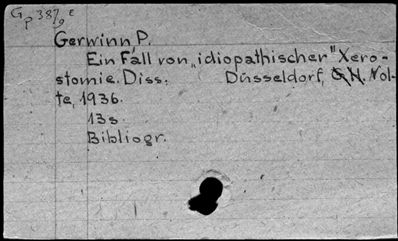 Gp 387/9 E
Gerwinn, P.
Ein Fall von „idiopathischer" Xero-
stomie. Diss. Düsseldorf, G.H. Nol-
te, 1936.
13s.
Bibliogr.